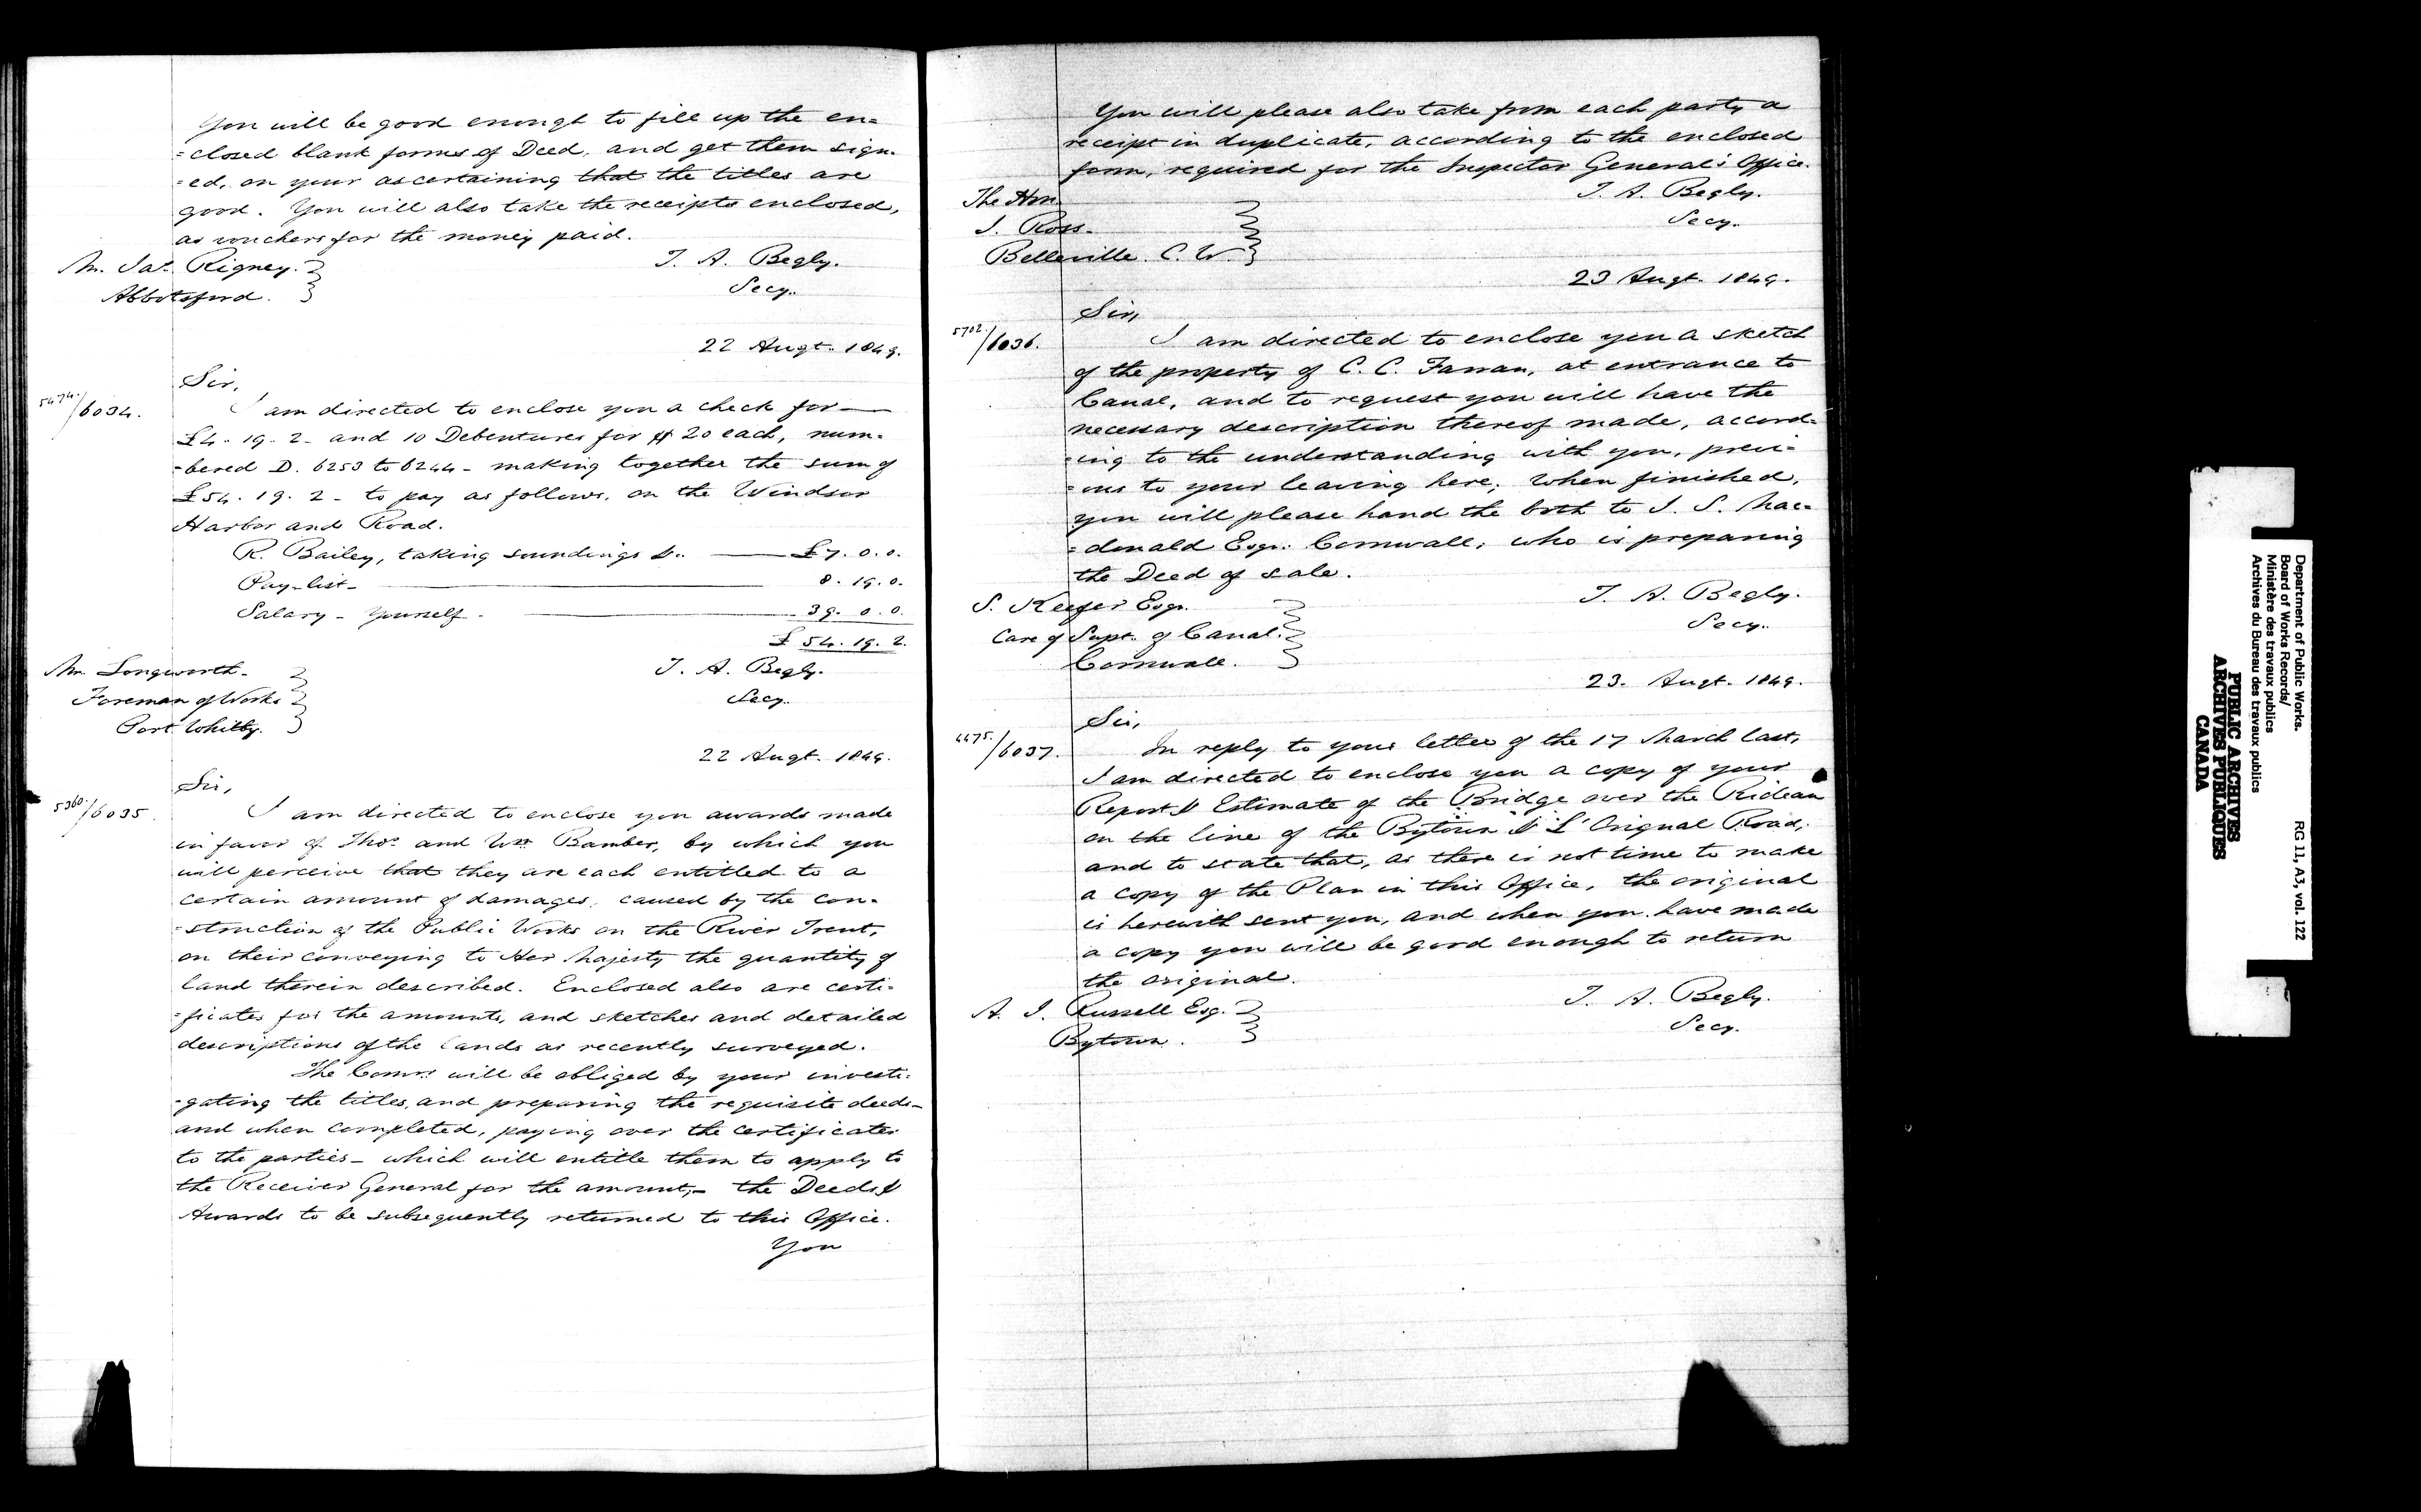 You will be good enough to fill up the en=
=closed blank forms of Deed, and get them sign-
=ed, on your ascertaining that the titles are
good. You will also take the receipts enclosed,
as vouchers for the money paid.
T. A. Begly.
Secy.
Mr. Jas. Rigney.
Abbotsford.
22 Augt. 1849.
5474./6034.
Sir,
I am directed to enclose you a check for
£4. 19. 2 - and 10 Debentures for $ 20 each, num-
=bered D. 6253 to 6244 - making together the sum of
£54. 19. 2 - to pay as follows, on the Windsor
Harbor and Road.
R. Bailey, taking soundings &c. £7. 0. 0.
Pay-list - 8. 19. 0.
Salary - Yourself - 39. 0. 0.
£ 54. 19. 2.
T. A. Begly.
Secy.
Mr. Longworth -
Foreman of Works
Port Whitby.
22 Augt. 1849.
5360./6035.
Sir,
I am directed to enclose you awards made
in favor of Thos. and Wm. Bamber, by which you
will perceive that they are each entitled to a
certain amount of damages, caused by the con-
=struction of the Public Works on the River Trent,
on their conveying to Her Majesty the quantity of
land therein described. Enclosed also are certi-
=ficates for the amounts, and sketches and detailed
descriptions of the lands as recently surveyed.
The Comrs. will be obliged by your investi-
=gating the titles, and preparing the requisite deeds -
and when completed, paying over the certificates
to the parties - which will entitle them to apply to
the Receiver General for the amount, - the Deeds &
Awards to be subsequently returned to this Office.
You
You will please also take from each party a
receipt in duplicate, according to the enclosed
form, required for the Inspector General's Office.
T. A. Begly.
Secy.
The Hon.
J. Ross.
Belleville. C. W.
23 Augt. 1849.
5702./6036.
Sir,
I am directed to enclose you a sketch
of the property of C. C. Farran, at entrance to
Canal, and to request you will have the
necessary description thereof made, accord=
=ing to the understanding with you, previ=
=ous to your leaving here; when finished,
you will please hand the both to J. S. Mac=
=donald Esqr. Cornwall, who is preparing
the Deed of sale.
T. A. Begly.
Secy.
S. Keefer Esqr.
Care of Supt. of Canal.
Cornwall.
23. Augt. 1849.
4475./6037.
Sir,
In reply to your letter of the 17 March last,
I am directed to enclose you a copy of your
Report & Estimate of the Bridge over the Rideau
on the line of the Bytown & L'Orignal Road;
and to state that, as there is not time to make
a copy of the Plan in this Office, the original
is herewith sent you, and when you have made
a copy you will be good enough to return
the original.
T. A. Begly.
Secy.
A. J. Russell Esq.
Bytown.
Department of Public Works.
Board of Works Records/
Ministère des travaux publics
Archives du Bureau des travaux publics
RG 11, A3, vol. 122
PUBLIC ARCHIVES
ARCHIVES PUBLIQUES
CANADA